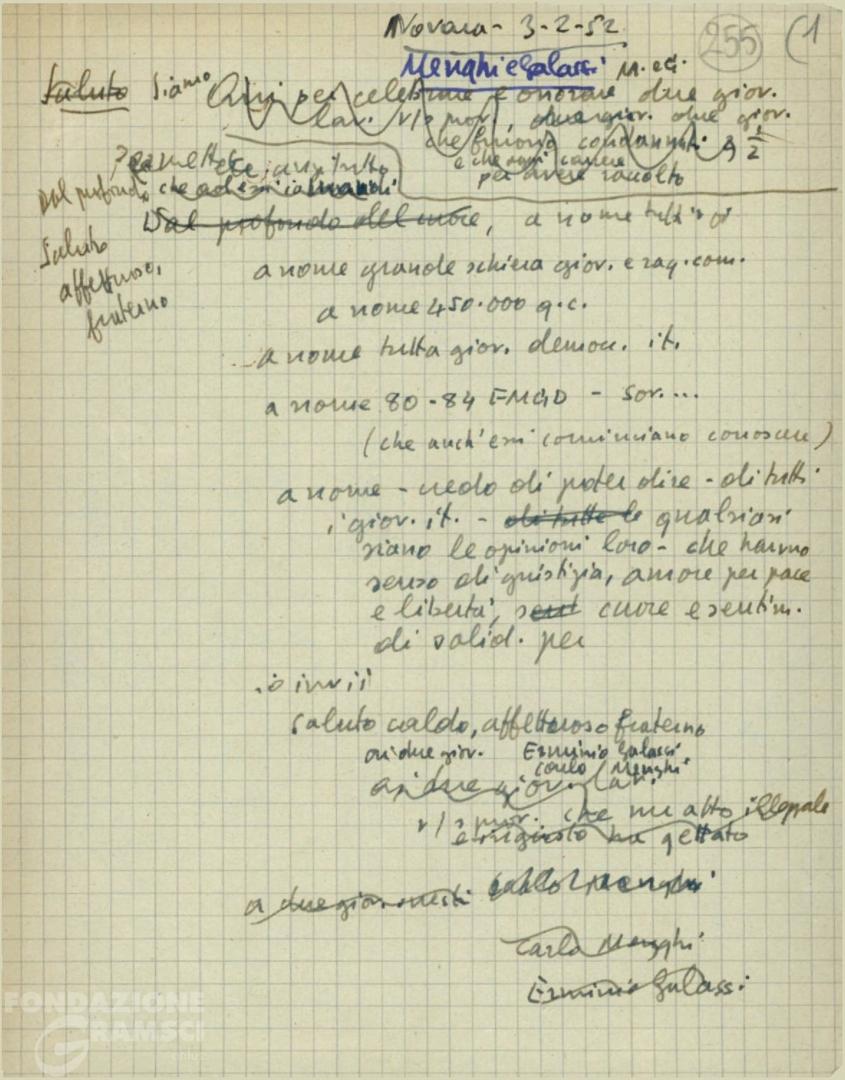 Novara - 3-2-52
255 (1
Menghi e Galassi M. ecc.
Saluto Siamo Qui per celebrare e onorare due giov.
lav. v/s prov, due giov. due giov.
che furono condannati a 1/2
Permettete, anzitutto e che carcere
per avere raccolto
Dal profondo che ad essi io mandi
Dal profondo del cuore, a nome tutti voi
Saluto
affettuoso,
fraterno
a nome grande schiera giov. e rag. com.
a nome 450.000 g.c.
a nome tutta giov. democ. it.
a nome 80-84 FMGD - Sov....
(che anch'essi cominciano conoscere)
a nome - credo di poter dire - di tutti
i giov. it. - di tutte le qualsiasi
siano le opinioni loro - che hanno
senso di giustizia, amore per pace
e libertà, sent cuore e sentim.
di solid. per
io invii
saluto caldo, affettuoso fraterno
ai due giov. Erminio Galassi
Carlo Menghi
ai due giov. lav.
v/s prov. che un atto illegale
e ingiusto ha gettato
a due giov. onesti Carlo Menghi
Carlo Menghi
Erminio Galassi
FONDAZIONE
GRAMSCI